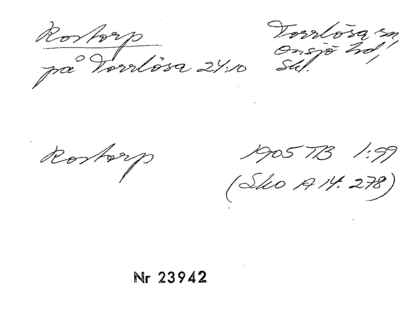 Rostorp
Torrlösa sn,
Onsjö hd,
på Torrlösa 24:10
Skl.
Rostorp
1905 TB 1:99
(Sko A 14: 278)
Nr 23942